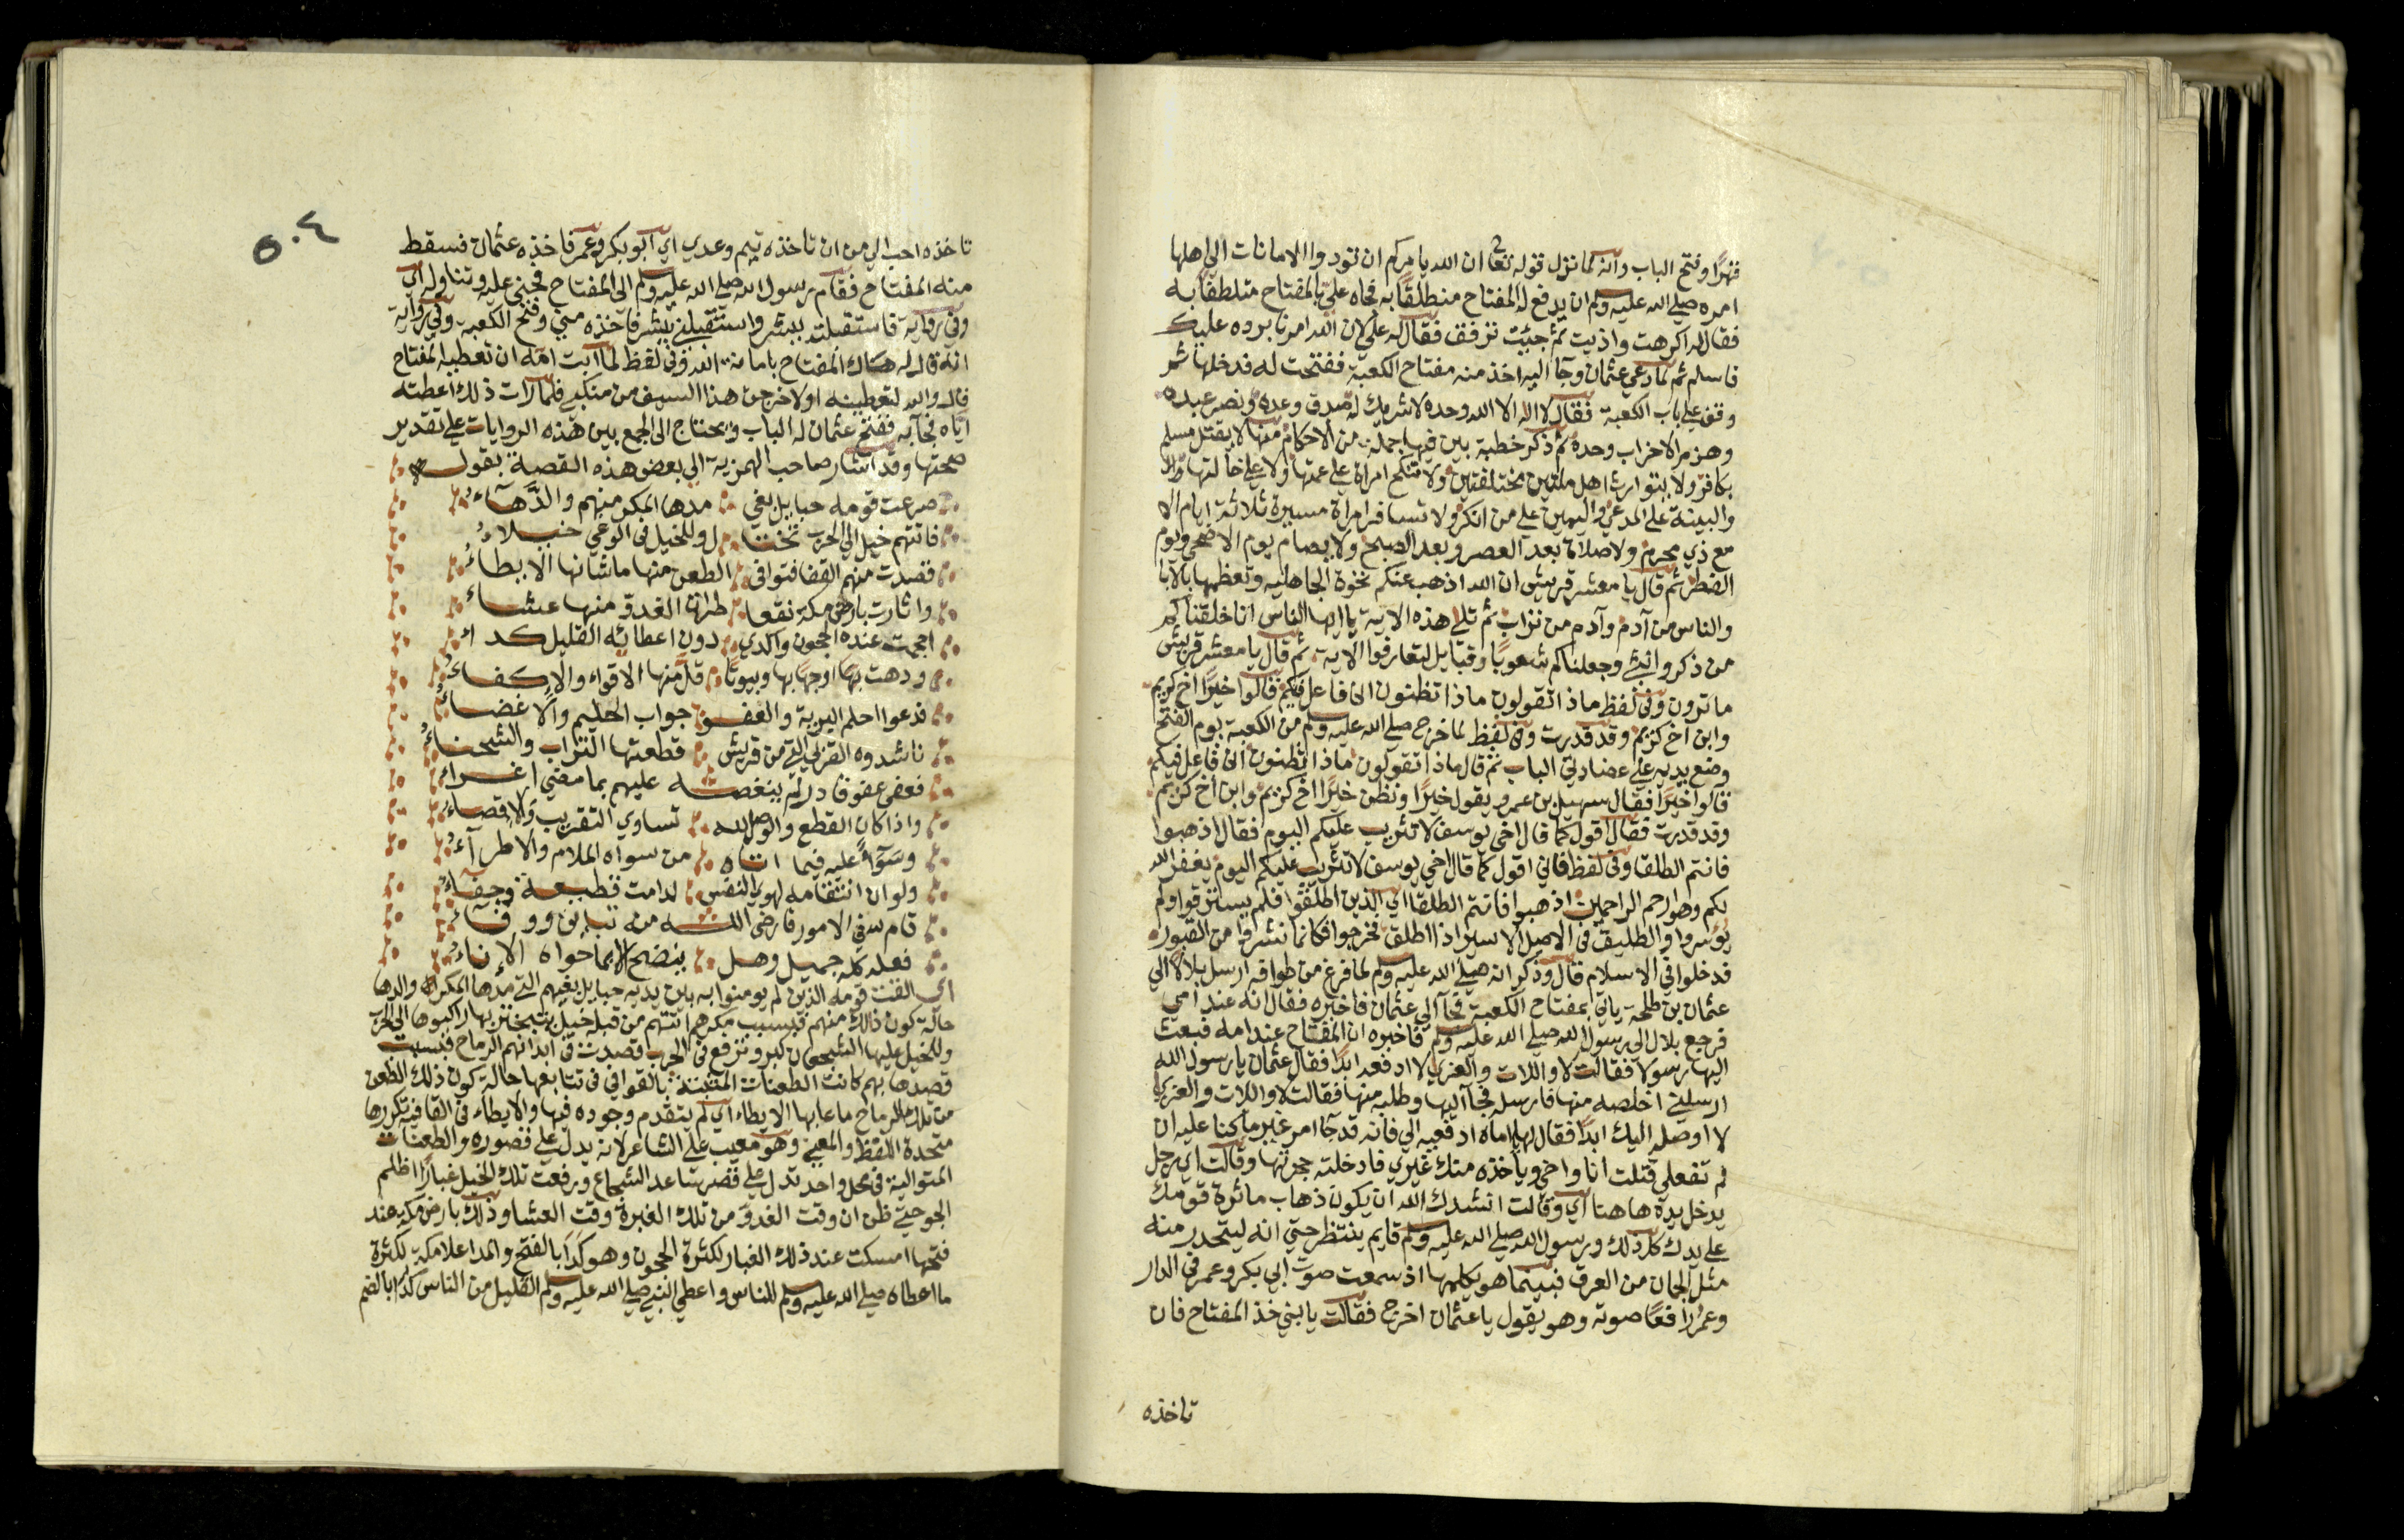 قهرًا وفتح الباب وانه لما نزل قوله تعا ان الله يامركم ان تودوا الامانات الي اهلها
امره صلي الله عليه وسلم ان يدفع له المفتاح متلطقا به فجاه علي بالمفتاح متلطفا به
فقال له اكرهت واذيت ثم جيت ترفق فقال له علي لان الله امرنا برده عليك
فاسلم ثم لما دعي عثمان وجآ اليه اخذ منه مفتاح الكعبة ففتحت له فدخلها ثم
وقف علي باب الكعبة فقال لا اله الا الله وحده لا شريك له صدق وعده ونصر عبده
وهزم الاحزاب وحده ثم ذكر خطبة بين فيها جملة من الاحكام منها لا يقتل مسلم
بكافر ولا يتوارث اهل ملتين مختلفتين ولا تنكح امراة علي عمتها ولا علي خالتها
والبينة علي المدعي واليمين علي من انكر ولا تسافر امراة مسيرة ثلاثة ايام الا
مع ذي محرم ولا صلاة بعد العصر وبعد الصبح ولا يصام يوم الاضحي ويوم
الفطر ثم قال يا معشر قريش ان الله اذهب عنكم نخوة الجاهليه وتعظمها بالابا
والناس من آدم وآدم من تراب ثم تلي هذه الاية ياايها الناس انا خلقناكم
من ذكر وانثي وجعلناكم شعوبًا وقبايل لتعارفوا الاية ثم قال يا معشر قريش
ما ترون وفي لفظ ماذا تقولون ماذا تظنون اني فاعل فيكم قالوا خيرًا اخ كريم
وابن اخ كريم وقد قدرت وفي لفظ لما خرج صلي الله عليه وسلم من الكعبة يوم الفتح
وضع يديه علي عضادتي الباب ثم قال ماذا تقولون ماذا تظنون اني فاعل فيكم
قالوا خيرًا فقال سهيل بن عمرو يقول خيرًا ونظن خيرًا اخ كريم وابن اخ كريم
وقد قدرت فقال اقول كما قال اخي يوسف لا تثريب عليكم اليوم فقال اذهبوا
فانتم الطلقا وفي لفظ فاني اقول كما قال اخي يوسف لا تثريب عليكم اليوم يغفر الله
لكم وهو ارحم الراحمين اذهبوا فانتم الطلقا اي الذين اطلقوا فلم يسترقوا ولم
يوسروا والطليق في الاصل الاسير اذا اطلق فخرجوا فكانما نشروا من القبور
فدخلوا في الاسلام قال وذكر انه صلي الله عليه وسلم لما فرغ من طوافه ارسل بلالا الي
عثمان بن طلحة ياتي بمفتاح الكعبة فجآ الي عثمان فاخبره فقال انه عند امي
فرجع بلال الي رسول الله صلي الله عليه وسلم فاخبره ان المفتاح عند امه فبعث
اليها رسولا فقالت لا واللات والعزي لا ادفعه ابدًا فقال عثمان يا رسول الله
ارسلني اخلصه منها فارسله فجآ اليها وطلبه منها فقالت لا واللات والعزي
لا اوصله اليك ابدًا فقال لها يا اماه ادفعيه الي فانه قد جآ امر غير ما كنا عليه ان
لم تفعلي قتلت انا واخي وياخذه منك غيري فادخلته حجرتها وقالت اي رجل
يدخل يده هاهنا اي وقالت انشدك الله ان يكون ذهاب ماثرة قومك
علي يدك كل ذلك ورسول الله صلي الله عليه وسلم قايم ينتظر حتي انه ليتحدر منه
مثل الجمان من العرق فبينما هو يكلمها اذ سمعت صوت ابي بكر وعمر في الدار
وعمر رافعًا صوته وهو يقول يا عثمان اخرج فقالت يا بني خذ المفتاح فان
تاخذه
٥٠٤
تاخذه احب الي من ان تاخذه تيم وعدي اي ابو بكر وعمر فاخذه عثمان فسقط
منه المفتاح فقام رسول الله صلي الله عليه وسلم الي المفتاح فحني عليه وتناوله اي
وفي رواية فاستقبلته ببشر واستقبلني ببشر فاخذه مني وفتح الكعبة وفي رواية
انه قال له هاك المفتاح بامانة الله وفي لفظ لما ابت امه ان تعطيه المفتاح
قال والله لتعطينه اولاخرجن هذا السيف من منكبي فلما رات ذلك اعطته
اياه فجآ به ففتح عثمان له الباب ويحتاج الي الجمع بين هذه الروايات علي تقدير
صحتها وقد اشار صاحب الهمزية الي بعض هذه القصة بقوله
صرعت قومه حبايل بغي مدها المكر منهم والدهآء
فاتتهم خيل الي الحرب تختا ل وللخيل في الوغي خيلاء
قصدت منهم القنا فقوافي الطعن منها ما شانها الايطاء
واثارت بارض مكة نقعا ظن ان الغدو منها عشاء
احجمت عنده الحجون واكدي دون اعطائه القليل كداء
ودهت بها اوجها بها وبيوتا مل منها الاقواء والاكفاء
فدعوا احلم البرية والعفو جواب الحليم والاغضاء
ناشدوه القربي التي من قريش قطعتها الترات والشحناء
فعفي عفو قادر لم ينغصه عليهم بما مضي اغراء
واذا كان القطع والوصل لله تساوي التقريب والاقصاء
وسواء عليه فيما اتاه من سواه الملام والاطرآء
ولو ان انتقامه لهوي النفس لدامت قطيعة وجفاء
قام لله في الامور فارضي الله منه تباين ووفاء
فعله كله جميل وهل ينضح الا بما حواه الاناء
اي القت قومه الذين لم يومنوا به بين يديه حبايل بغيهم التي مدها المكر والدها
حالة كون ذلك منهم فبسبب مكرهم اتتهم من قبله خيل يتبختر بها راكبوها الي الحرب
وللخيل عليها الشجعان كبر وترفع في الحرب قصدت في ابدانهم الرماح فبسبب
قصدها بهم كانت الطعنات المشبهة بالقوافي في تتابعها حالة كون ذلك الطعن
من تلك الرماح ما عابها الايطاء اي لم يتقدم وجوده فيها والايطاء في القافية تكررها
متحدة اللفظ والمعني وهو معيب علي الشاعر لانه يدل علي قصوره والطعنات
المتوالية في محل واحد تدل علي قصر ساعد الشجاع ورفعت تلك الخيل غبارًا اظلم
الجو حتي ظن ان وقت الغدو من تلك الغبرة وقت العشا وذلك بارض مكة عند
فتحها امسكت عند ذلك الغبار لكثرة الحجون وهو كدا بالفتح والمد اعلا مكة لكثرة
ما اعطاه صلي الله عليه وسلم للناس واعطي النبي صلي الله عليه وسلم القليل من الناس كدا بالضم